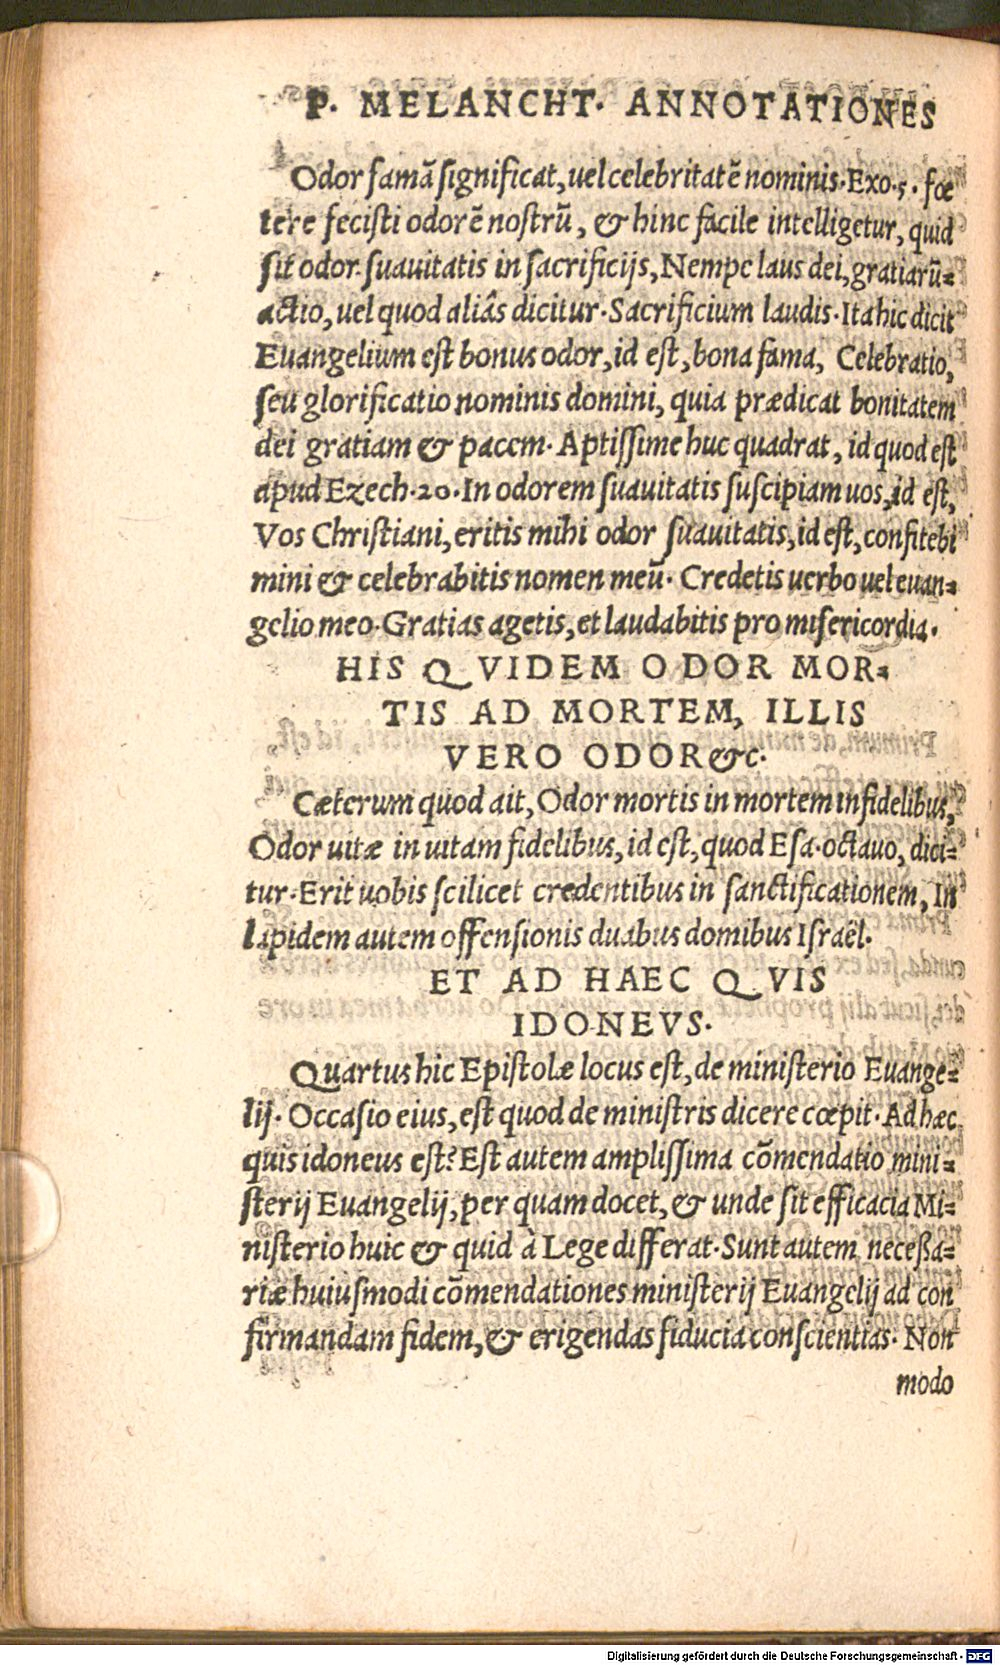 P. MELANCHT. ANNOTATIONES
Odor famā significat, uel celebritatē nominis. Exo. 5. fœ
tere fecisti odorē nostrū, & hinc facile intelligetur, quid
sit odor suauitatis in sacrificijs, Nempe laus dei, gratiarū-
actio, uel quod aliâs dicitur. Sacrificium laudis. Ita hic dicit
Euangelium est bonus odor, id est, bona fama, Celebratio,
seu glorificatio nominis domini, quia prædicat bonitatem
dei gratiam & pacem. Aptissime huc quadrat, id quod est
apud Ezech. 20. In odorem suauitatis suscipiam uos, id est,
Vos Christiani, eritis mihi odor suauitatis, id est, confitebi
mini & celebrabitis nomen meū. Credetis uerbo uel euan-
gelio meo. Gratias agetis, et laudabitis pro misericordia.
HIS QVIDEM ODOR MOR-
TIS AD MORTEM, ILLIS
VERO ODOR &c.
Cæterum quod ait, Odor mortis in mortem infidelibus,
Odor uitæ in uitam fidelibus, id est, quod Esa. octauo, dici-
tur. Erit uobis scilicet credentibus in sanctificationem, In
lapidem autem offensionis duabus domibus Israël.
ET AD HAEC QVIS
IDONEVS.
Quartus hic Epistolæ locus est, de ministerio Euange-
lij. Occasio eius, est quod de ministris dicere cœpit. Ad hæc
quis idoneus est? Est autem amplissima cōmendatio mini-
sterij Euangelij, per quam docet, & unde sit efficacia Mi-
nisterio huic & quid à Lege differat. Sunt autem necessa-
riæ huiusmodi cōmendationes ministerij Euangelij ad con
firmandam fidem, & erigendas fiducia conscientias. Non
modo
Digitalisierung gefördert durch die Deutsche Forschungsgemeinschaft - DFG